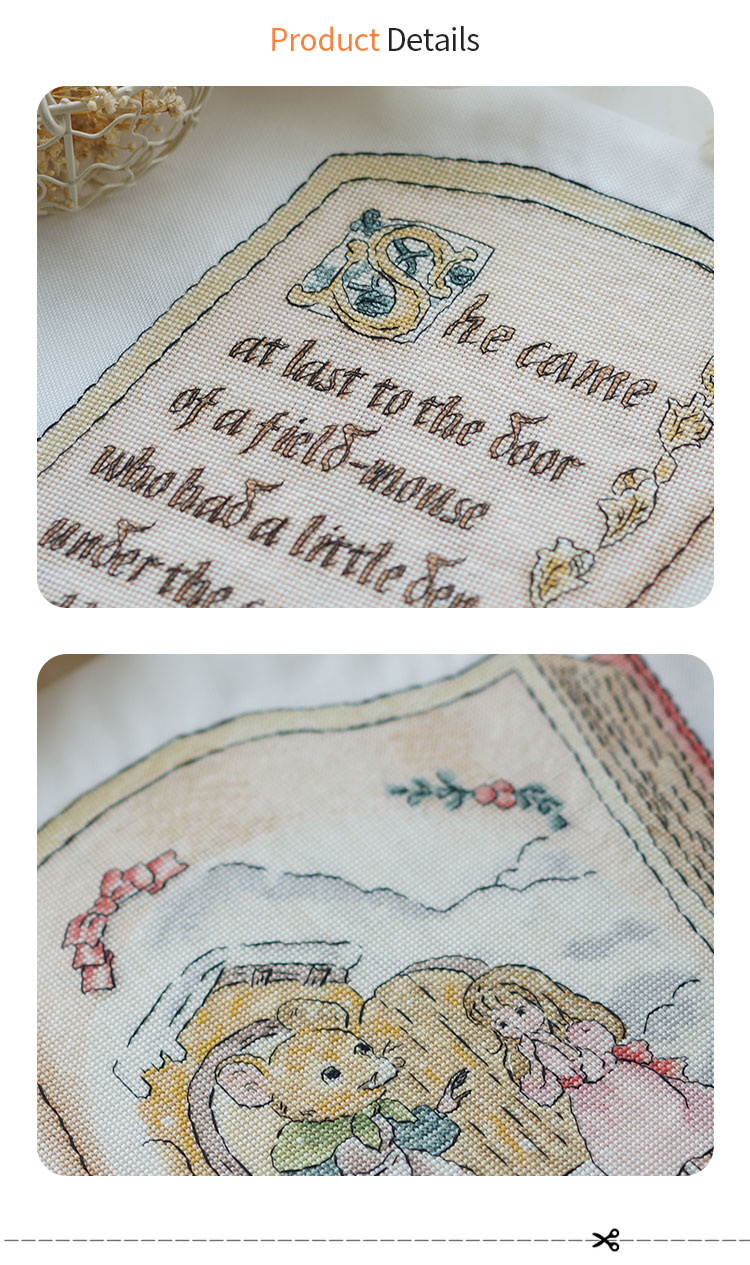 Product Details
She came
at last to the door
of a field-mouse
who had a little den
under the